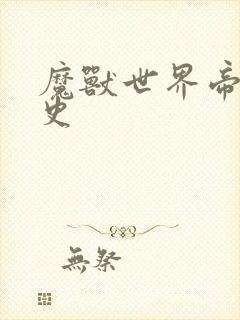 魔獸世界帝
史
無祭